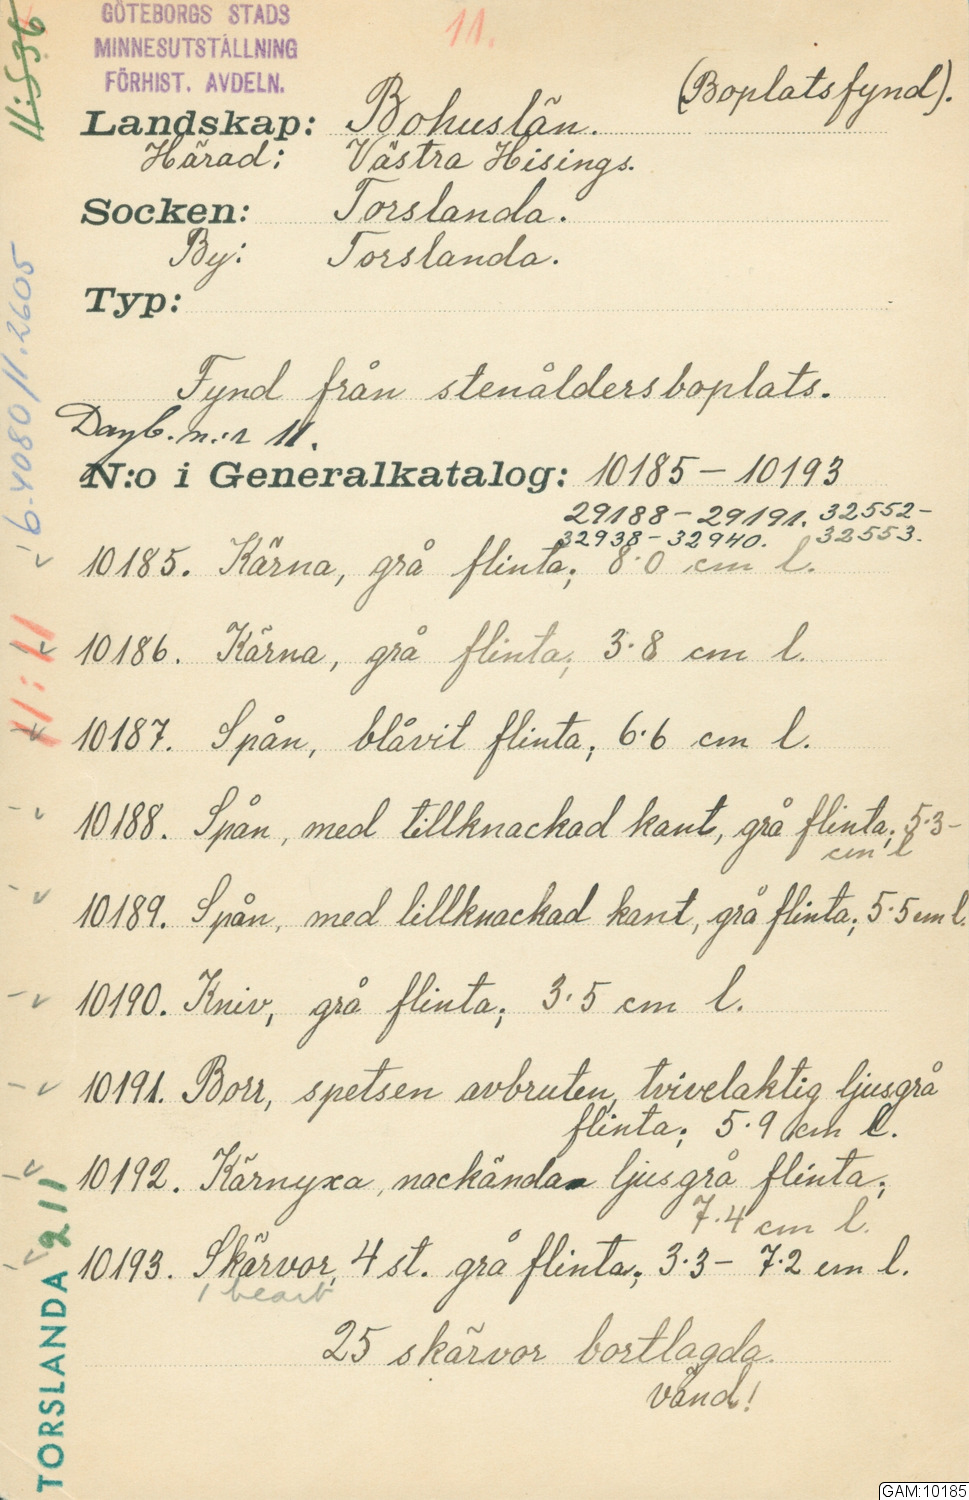 GÖTEBORGS STADS
MINNESUTSTÄLLNING
FÖRHIST. AVDELN.
11.
(Boplatsfynd).
Landskap: Bohuslän.
Härad: Västra Hisings.
Socken: Torslanda.
By: Torslanda.
Typ:
Fynd från stenåldersboplats.
Dagb. n:r 11.
N:o i Generalkatalog: 10185 – 10193
29188 – 29191. 32552 –
32938 – 32940. 32553.
10185. Kärna, grå flinta; 8.0 cm l.
10186. Kärna, grå flinta; 3.8 cm l.
10187. Spån, blåvit flinta; 6.6 cm l.
10188. Spån, med tillknackad kant, grå flinta; 5.3
cm l
10189. Spån, med tillknackad kant, grå flinta; 5.5 cm l.
10190. Kniv, grå flinta; 3.5 cm l.
10191. Borr, spetsen avbruten, tvivelaktig ljusgrå
flinta; 5.9 cm l.
10192. Kärnyxa, nackända ljusgrå flinta;
7.4 cm l.
10193. Skärvor, 4 st. grå flinta; 3.3 – 7.2 cm l.
1 bearb
25 skärvor bortlagda.
vänd!
11:536
6-4080/11.2605
11:11
TORSLANDA 211
GAM:10185